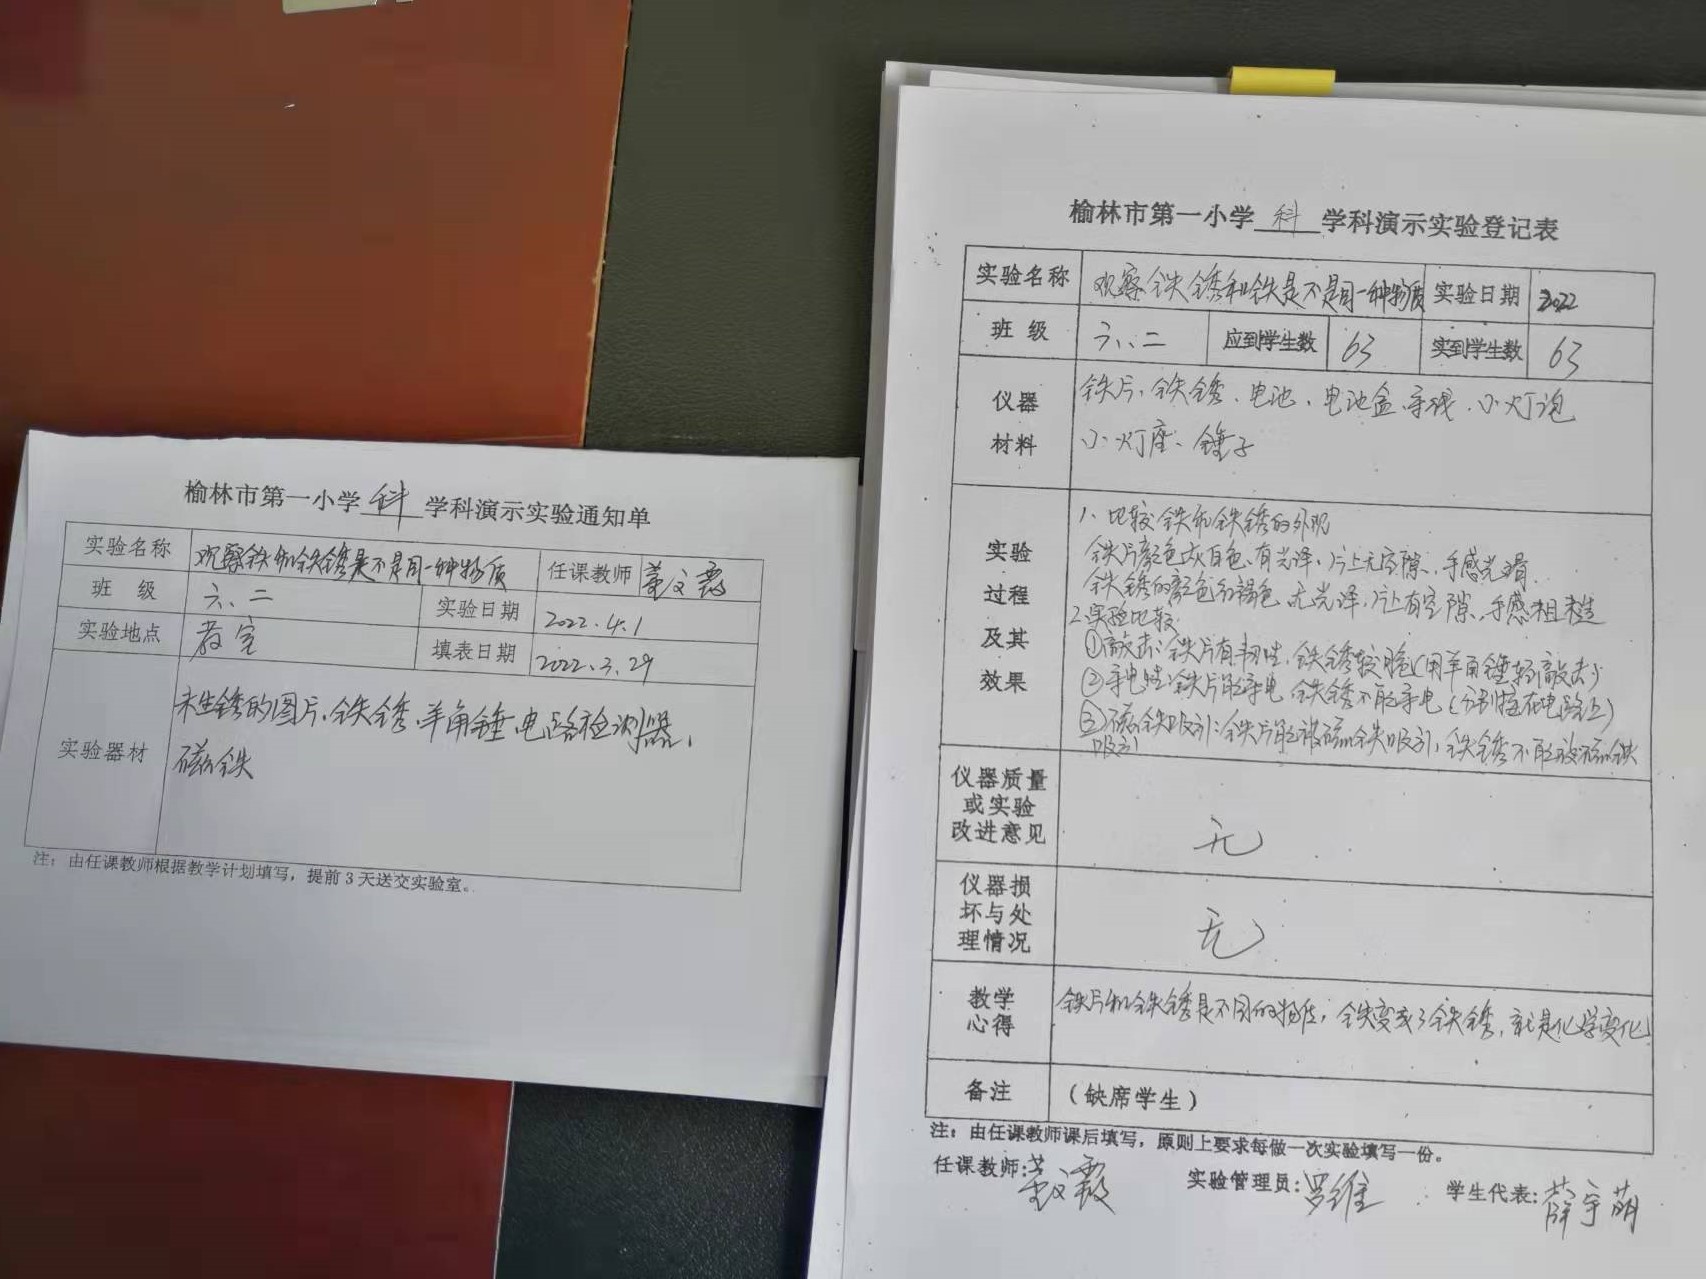 榆林市第一小学 科 学科演示实验通知单
实验名称 观察铁和铁锈是不是同一种物质 任课教师 董文霞
班 级 六、二 实验日期 2022.4.1
实验地点 教室 填表日期 2022.3.29
实验器材
未生锈的图片、铁锈、羊角锤、电路检测器、
磁铁
注:由任课教师根据教学计划填写,提前3天送交实验室。
榆林市第一小学 科 学科演示实验登记表
实验名称 观察铁锈和铁是不是同一种物质 实验日期 2022
班 级 六、二 应到学生数 63 实到学生数 63
仪器
材料
铁片、铁锈、电池、电池盒、导线、小灯泡
小灯座、锤子
实验
过程
及其
效果
1、比较铁和铁锈的外观
铁片颜色灰白色、有光泽,片上无空隙、手感光滑
铁锈的颜色红褐色、无光泽,片上有空隙、手感粗糙
2.实验比较
①敲击:铁片有韧性,铁锈较脆(用羊角锤轻敲击)
②导电性:铁片能导电,铁锈不能导电(分别接在电路上)
③磁铁吸引:铁片能被磁铁吸引,铁锈不能被磁铁
吸引
仪器质量
或实验
改进意见
无
仪器损
坏与处
理情况
无
教学
心得
铁片和铁锈是不同的物质,铁变成了铁锈,就是化学变化
备注 (缺席学生)
注:由任课教师课后填写,原则上要求每做一次实验填写一份。
任课教师:董文霞 实验管理员:罗维 学生代表:薛宇萌